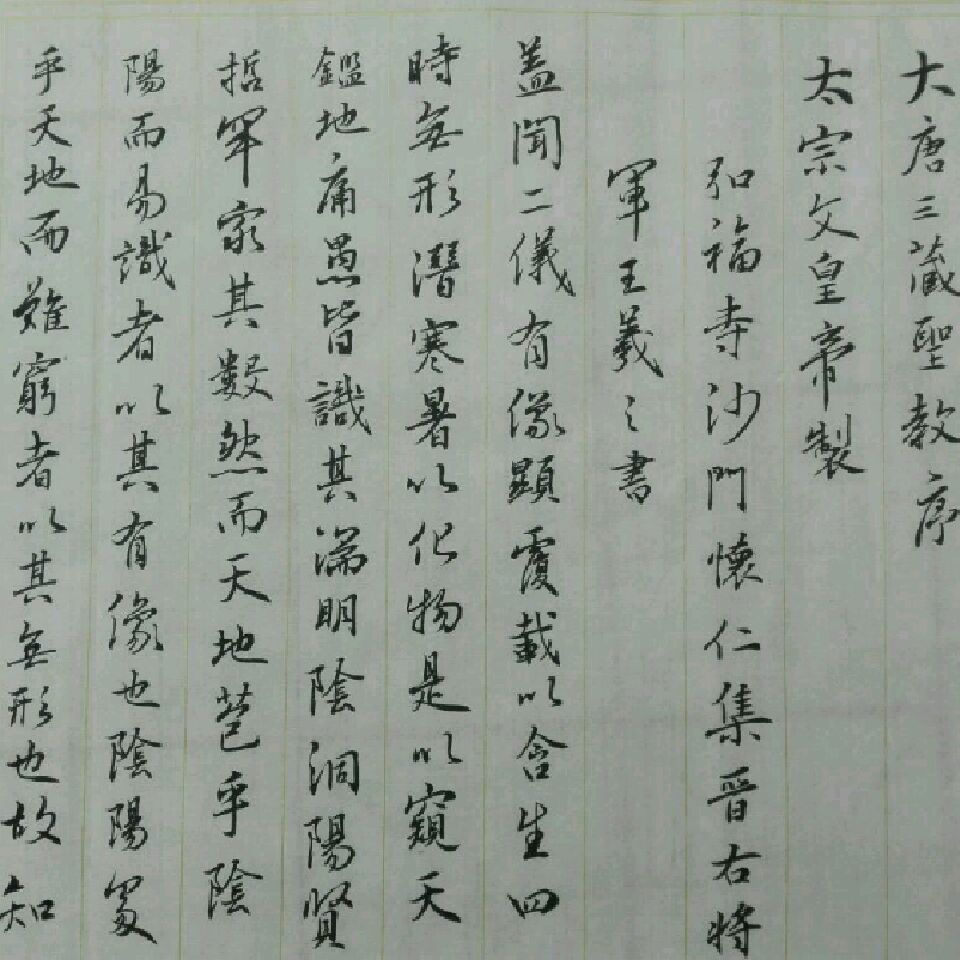 大唐三藏聖教序
太宗文皇帝製
弘福寺沙門懷仁集晉右將
軍王羲之書
蓋聞二儀有像顯覆載以含生四
時無形潛寒暑以化物是以窺天
鑑地庸愚皆識其端明陰洞陽賢
哲罕窮其數然而天地苞乎陰
陽而易識者以其有像也陰陽處
乎天地而難窮者以其無形也故知